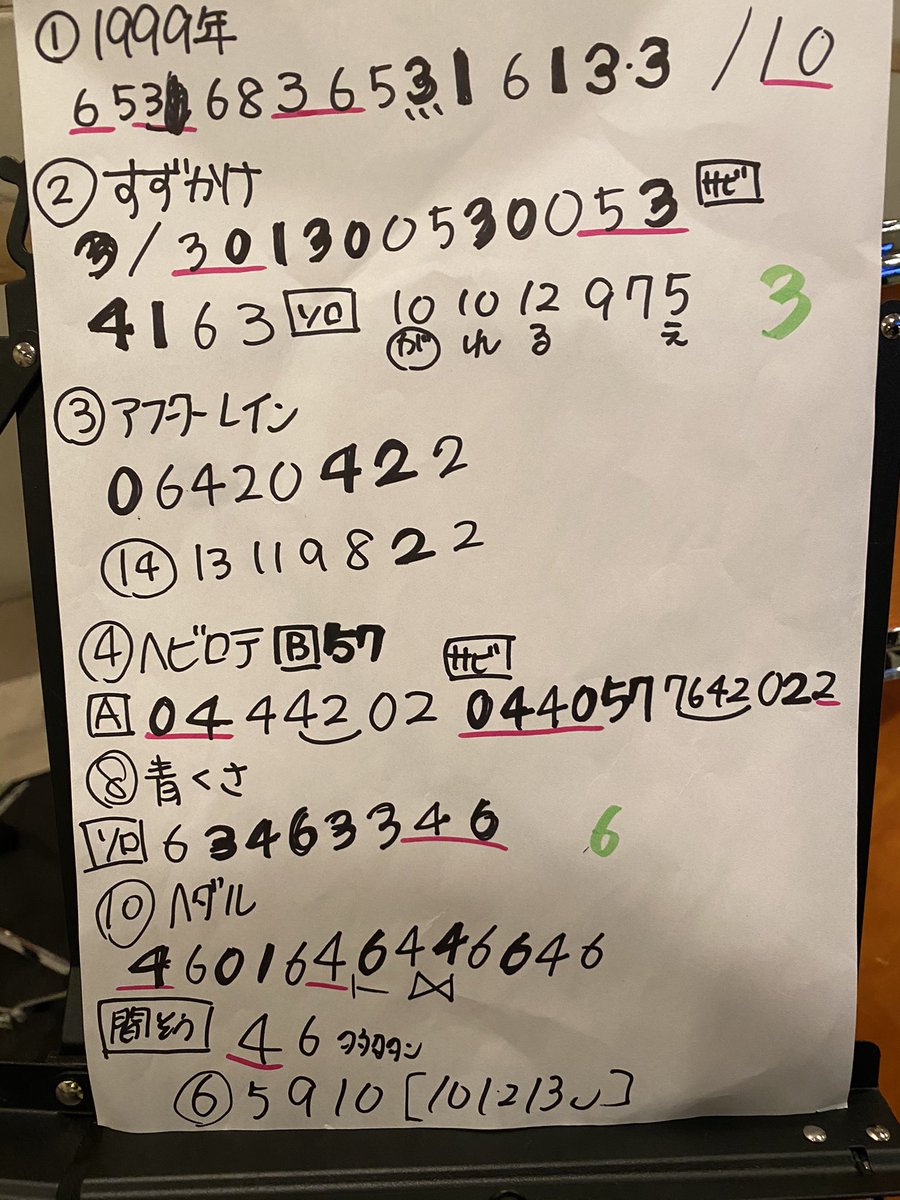 ① 1999年
6 5 3 1 6 8 3 6 5 3 1 6 1 3・3 / 10
② すずかけ
3 / 3 0 1 3 0 0 5 3 0 0 0 5 3 サビ
4 1 6 3 ソロ 10 10 12 9 7 5 3
が れ る え
③ アフターレイン
0 6 4 2 0 4 2 2
⑭ 13 11 9 8 2 2
④ ヘビロテ B 57 サビ
A 0 4 4 4 2 0 2 0 4 4 0 5 7 7 6 4 2 0 2 2
⑧ 青くさ
ソロ 6 3 4 6 3 3 4 6 6
⑩ ハダル
4 6 0 1 6 4 6 4 4 6 6 4 6
間そう 4 6
⑥ 5 9 10 [10 12 13